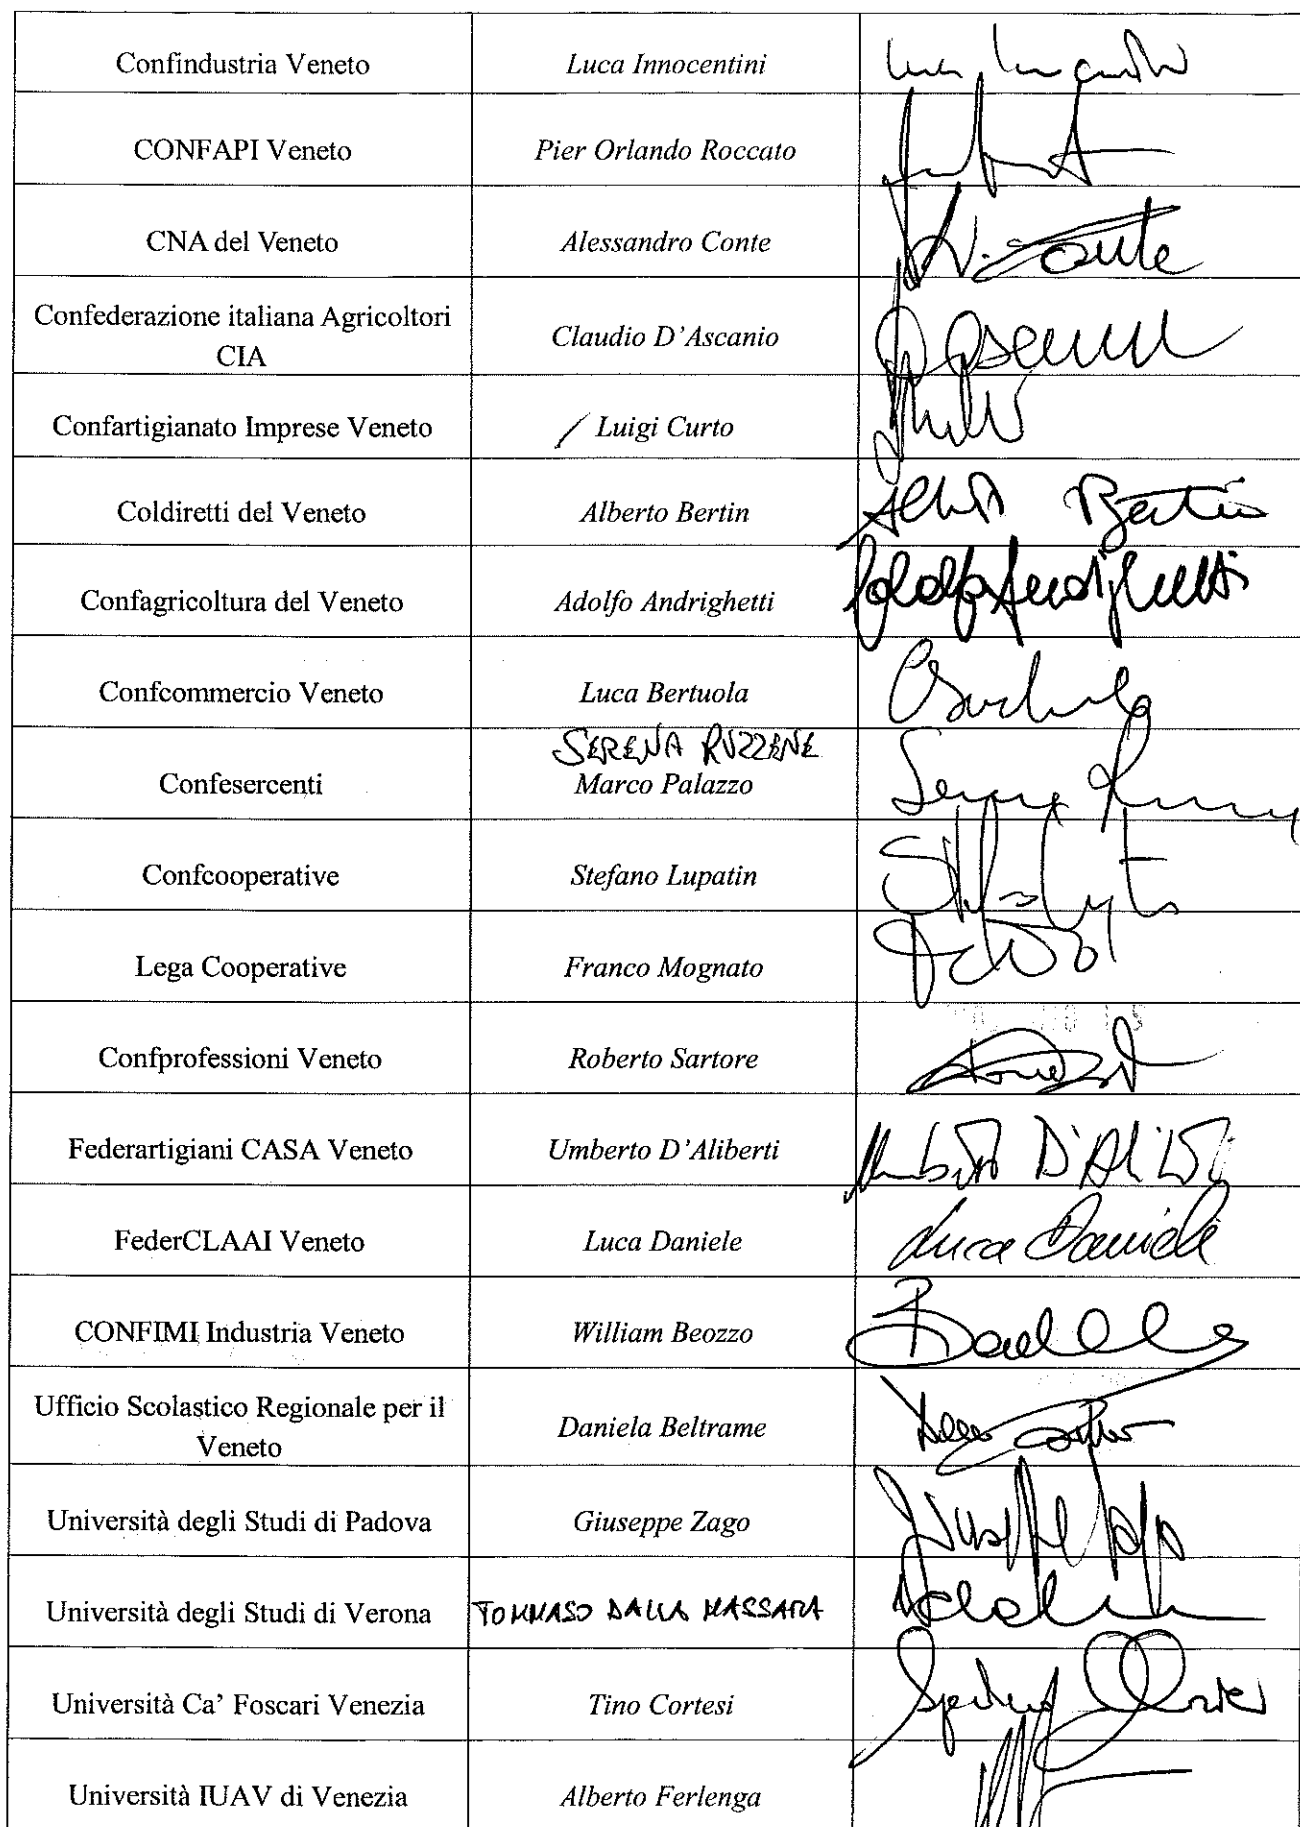 Confindustria Veneto Luca Innocentini
CONFAPI Veneto Pier Orlando Roccato
CNA del Veneto Alessandro Conte
Confederazione italiana Agricoltori
CIA Claudio D'Ascanio
Confartigianato Imprese Veneto Luigi Curto
Coldiretti del Veneto Alberto Bertin Bertin
Confagricoltura del Veneto Adolfo Andrighetti Adolfo Andrighetti
Confcommercio Veneto Luca Bertuola
SERENA RUZZENE
Confesercenti Marco Palazzo Serena
Confcooperative Stefano Lupatin
Lega Cooperative Franco Mognato
Confprofessioni Veneto Roberto Sartore
Federartigiani CASA Veneto Umberto D'Aliberti Umberto D'Aliberti
FederCLAAI Veneto Luca Daniele Luca Daniele
CONFIMI Industria Veneto William Beozzo
Ufficio Scolastico Regionale per il
Veneto Daniela Beltrame
Università degli Studi di Padova Giuseppe Zago Giuseppe Zago
Università degli Studi di Verona TOMMASO DALLA MASSARA
Università Ca' Foscari Venezia Tino Cortesi
Università IUAV di Venezia Alberto Ferlenga